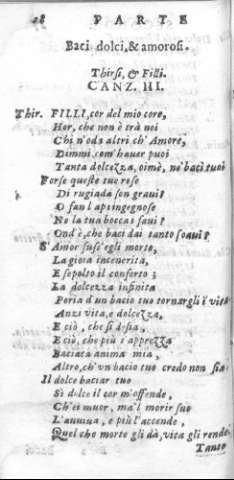 28 PARTE
Baci dolci, & amorosi.
Thirsi, & Filli.
CANZ. III.
Thir. FILLI, cor del mio core,
Hor, che non è trà noi
Ch'n'ods altri ch'Amore,
Dimmi com'hauer puoi
Tanta dolcezza, oimè, ne' baci tuoi
Forse queste tue rose
Di rugiada son graui?
O san l'api ingegnose
Ne la tua bocca i faui?
Ond'è, che baci dai tanto soaui?
S'Amor fuss'egli morto,
La gioia incenerita,
E sepolto il conforto;
La dolcezza infinita
Poria d'un bacio tuo tornargli ï vita
Anzi vita, e dolcezza,
E ciò, che si desia,
E ciò, che più s'apprezza
Baciata anima mia,
Altro, ch'vn bacio tuo credo non sia.
Il dolce baciar tuo
Sì dolce il cor m'offende,
Ch'ei muor, ma'l morir suo
L'auuiua, e più l'accende,
Quel che morte gli dà, vita gli rende.
Tanto